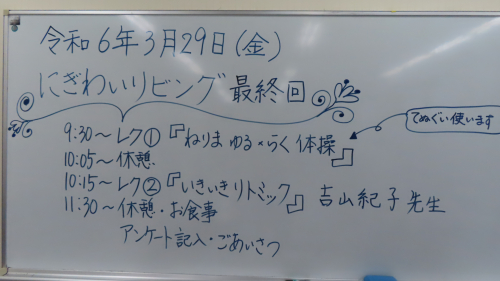 令和6年3月29日(金)
にぎわいリビング 最終回
9:30～レク①『ねりま ゆる×らく 体操』
てぬぐい使います
10:05～休憩
10:15～レク②『いきいきリトミック』 吉山紀子先生
11:30～休憩・お食事
アンケート記入・ごあいさつ